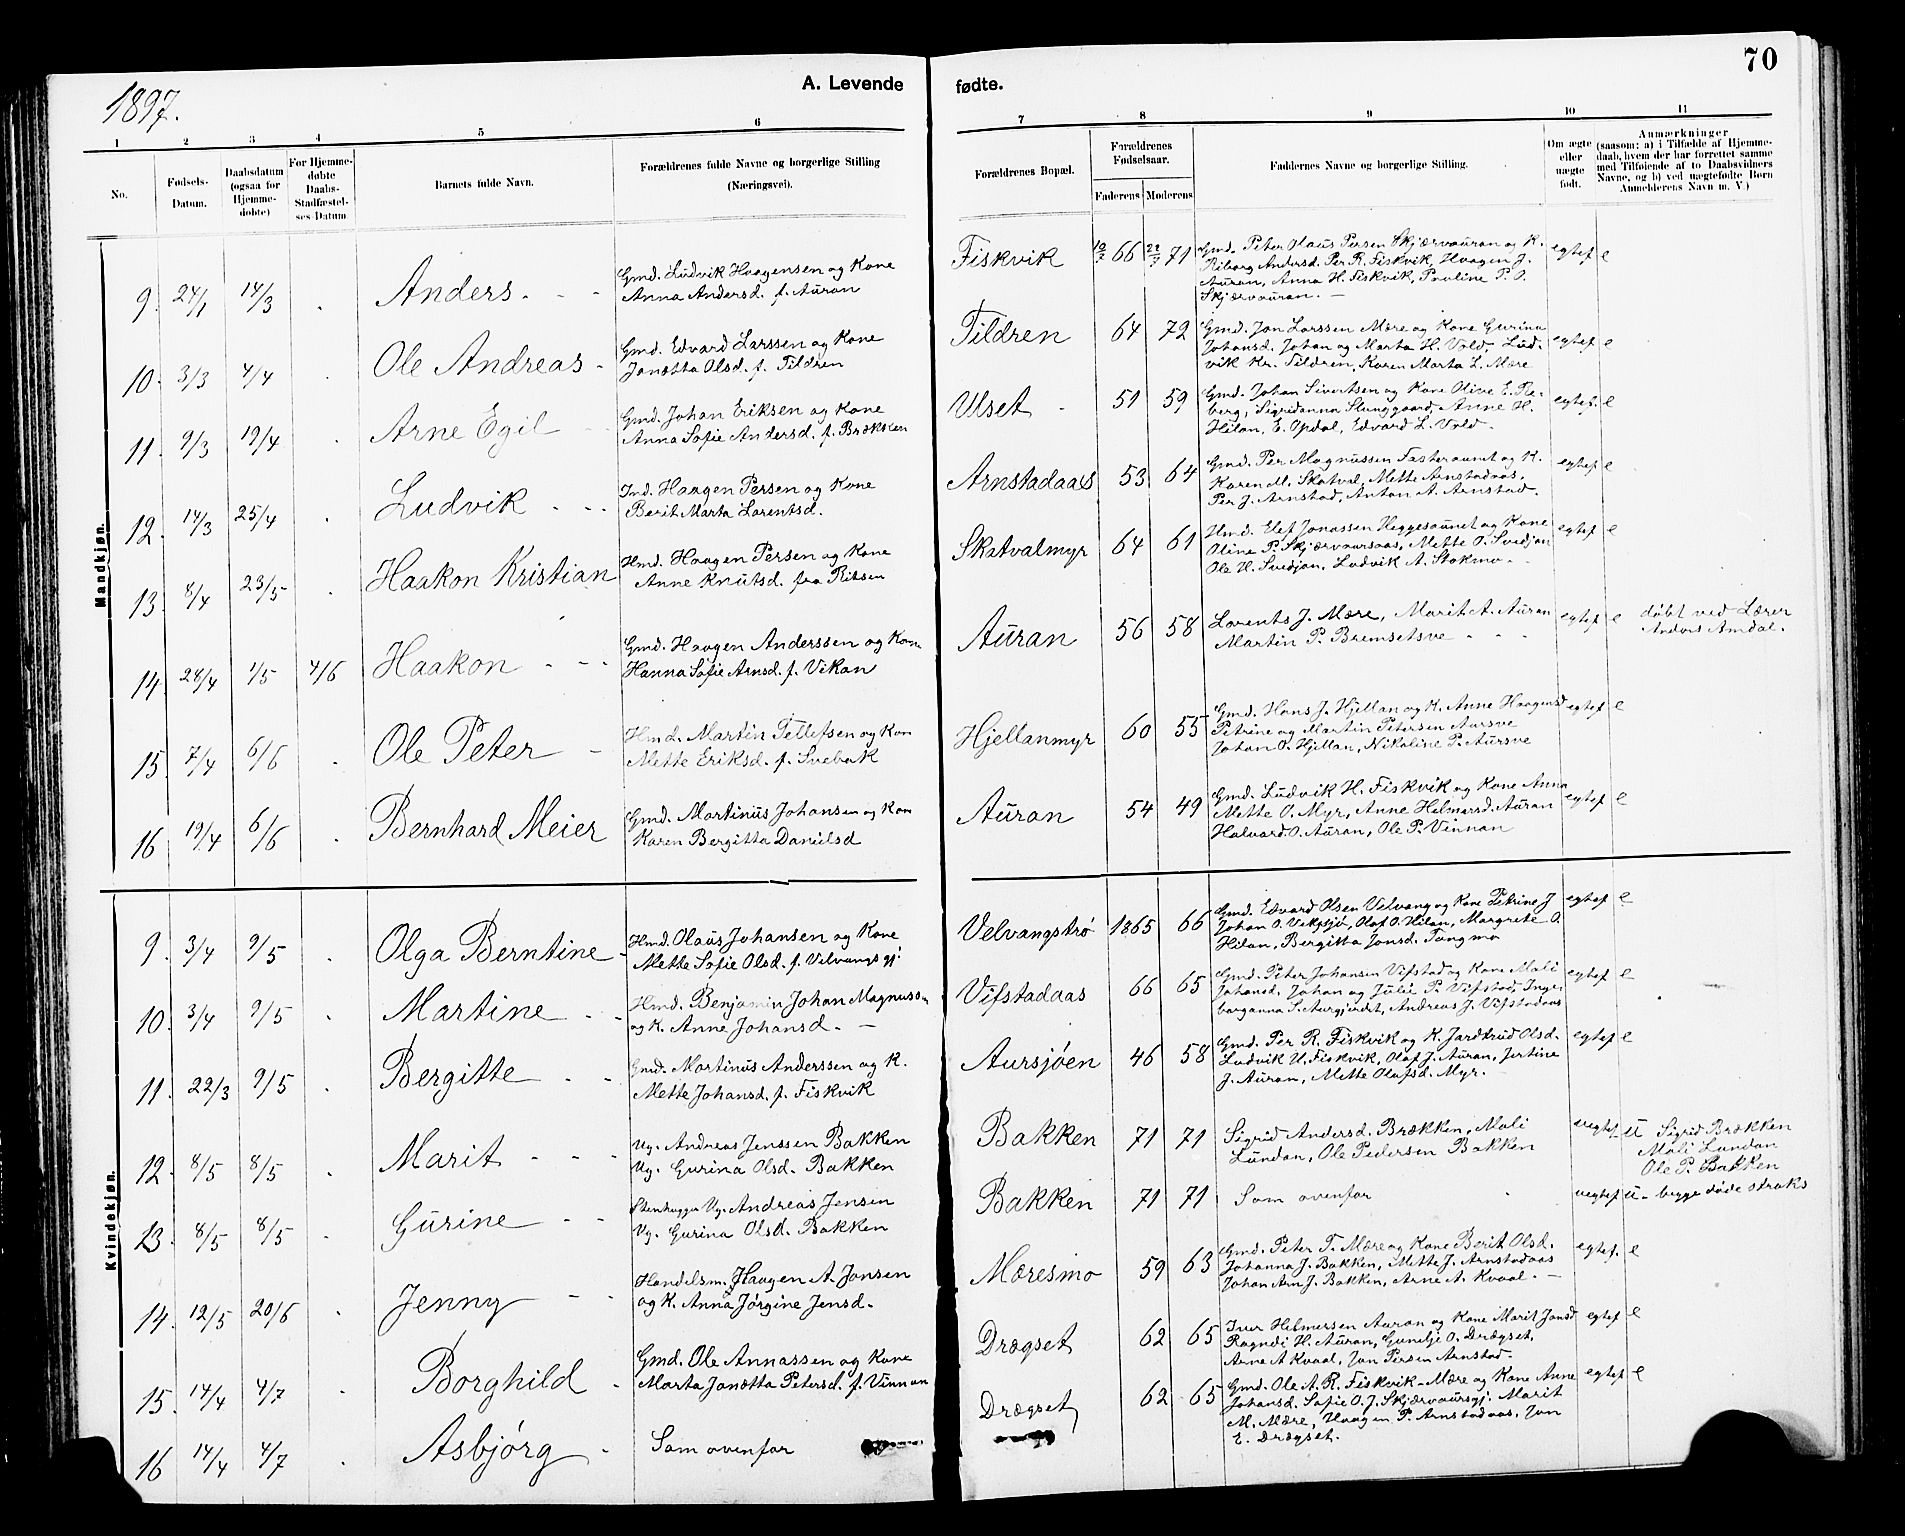 70
1897.
A. Levende
fødte.
1 2 3 4 5 6 7 8 9 10 11
No.
Fødsels-
Datum.
Daabsdatum
(ogsaa for
Hjemme-
døbte)
For Hjemme-
døbte
Daabs-
Stadfæstel-
ses-Datum
Barnets fulde Navn.
Forældrenes fulde Navne og borgerlige Stilling
(Næringsvei).
Forældrenes Bopæl.
Forældrenes
Fødselsaar.
Faderens Moderens
Faddernes Navne og borgerlige Stilling.
Om ægte
eller
uægte
født.
Anmærkninger
(saasom: a) i Tilfælde af Hjemme-
daab, hvem der har forrettet samme
med Tilføiende af to Daabsvidners
Navne, og b) ved uægtefødte Børn
Anmelderens Navn m. V.)
Mandkjøn.
9. 24/1 14/3 . Anders
Gmd. Ludvik Haagensen og Kone
Anna Andersd. f. Auran
Fiskvik 66 71
Gmd. Peter Olaus Persen Skjærvauran og K.
Riborg Andersd. Per R. Fiskvik, Haagen J.
Auran, Anna H. Fiskvik, Pauline P. O.
Skjærvauran. —
egtef e
10. 3/3 4/4 Ole Andreas
Gmd. Edvard Larssen og Kone
Janætta Olsd. f. Tildren
Tildren 64 72
Gmd. Jon Larssen Mære og Kone Gurina
Johansd. Johan og Marta H. Vold, Lud-
vik Kr. Tildren, Karen Marta L. Mære
egtef e
11. 9/3 19/4 . Arne Egil
Gmd. Johan Eriksen og Kone
Anna Sofie Andersd. f. Brækken
Ulset 51 59
Gmd. Johan Sivertsen og Kone Olive E. Re-
berg, Sigridanna Stunggaard, Anne H.
Hilan, E. Opdal, Edvard L. Vold.
egtef. e
12. 14/3 25/4 . Ludvik
Ind. Haagen Persen og Kone
Berit Marta Lorentsd.
Arnstadaas 53 64
Gmd. Per Magnussen Fasteraunet og K.
Karen M. Skatval, Mette Arnstadaas,
Per J. Arnstad, Anton A. Arnstad.
egtef e
13. 8/4 23/5 . Haakon Kristian
Hmd. Haagen Persen og Kone
Anne Knutsd. fra Rissen
Skatvalmyr 64 61
Hmd. Elef Jonassen Heggesaunet og Kone
Oline P. Skjærvaursaas, Mette O. Svedjan
Ole H. Svedjan, Ludvik A. Stokmo.
egtef e
14. 24/4 1/5 4/6 Haakon
Gmd. Haagen Anderssen og Kone
Hanna Sofie Arnsd. f. Vikan
Auran 56 58
Lorents J. Mære, Marit A. Auran
Martin P. Bremsetsve
egtef e
døbt ved Lærer
Anders Amdal.
15. 7/4 6/6 . Ole Peter
Hmd. Martin Tellefsen og Kon
Mette Eriksd. f. Svebak
Hjellanmyr 60 55
Gmd. Hans J. Hjellan og K. Anne Haagensd
Petrine og Martin Petersen Aursve
Johan O. Hjellan, Nikoline P. Aursve
egtef e
16 19/4 6/6 . Bernhard Meier
Gmd. Martinus Johansen og Kon
Karen Bergitta Danielsd
Auran 54 49
Gmd. Ludvik H. Fiskvik og Kone Anna
Mette O. Myr, Anne Helmersd. Auran
Halvard O. Auran, Ole P. Vinnan
egtef e
Kvindekjøn.
9. 3/4 9/5 . Olga Berntine
Hmd. Olaus Johansen og Kone
Mette Sofie Olsd. f. Velvangsgj.
Velvangstrø 1865 66
Gmd. Edvard Olsen Velvang og Kone Petrine J
Johan O. Vikstjø, Olaf O. Hilan, Margrete O.
Hilan, Bergitta Jonsd. Tangmo
egtef e
10. 3/4 9/5 . Martine
Hmd. Benjamin Johan Magnussn
og K. Anne Johansd. —
Vifstadaas 66 65
Gmd. Peter Johansen Vifstad og Kone Mali
Johansd. Johan og Julie P. Vifstad, Inge-
borganna S. Aurgjerdet, Andreas J. Vifstadaas
egtef e
11. 22/3 9/5 . Bergitte
Gmd. Martinus Anderssen og K.
Mette Johansd. f. Fiskvik
Aursjøen 46 58
Gmd. Per R. Fiskvik og K. Jardtrud Olsd.
Ludvik H. Fiskvik, Olaf J. Auran, Jertine
J. Auran, Mette Olafsd. Myr.
egtef e
12. 8/5 8/5 . Marit
Ug. Andreas Jenssen Bakken
Ug. Gurina Olsd. Bakken
Bakken 71 71
Sigrid Andersd. Brækken, Mali
Lundan, Ole Pedersen Bakken
uegtef u
Sigrid Brækken
Mali Lundan
Ole P. Bakken
13. 8/5 8/5 . Gurine
Stenhugger Ug. Andreas Jensen
Ug. Gurina Olsd. Bakken
Bakken 71 71
Som ovenfor
uegtef u - begge døde straks
14. 12/5 20/6 . Jenny
Handelsm. Haagen A. Jonsen
og K. Anna Jørgine Jensd.
Mæresmo 59 63
Gmd. Peter T. Mære og Kone Berit Olsd.
Johanna J. Bakken, Mette J. Arnstadaas
Johan Arn J. Bakken, Arne A. Kvaal. —
egtef. e
15. 14/4 4/7 . Borghild
Gmd. Ole Annassen og Kone
Marta Janætta Petersd. f. Vinnan
Drægset 62 65
Iver Helmersen Auran og Kone Marit Jonsd
Ragndi H. Auran, Gunelje O. Drægset,
Arne A Kvaal, Jon Persen Arnstad.
egtef e
16 14/4 4/7 . Asbjørg
Som ovenfor
Drægset 62 65
Gmd. Ole A. R. Fiskvik-Mære og Kone Anne
Johansd. Sofie O. J. Skjærvaursgj. Marit
M. Mære, Haagen P. Arnstadaas, Jon
E. Drægset.
egtef e